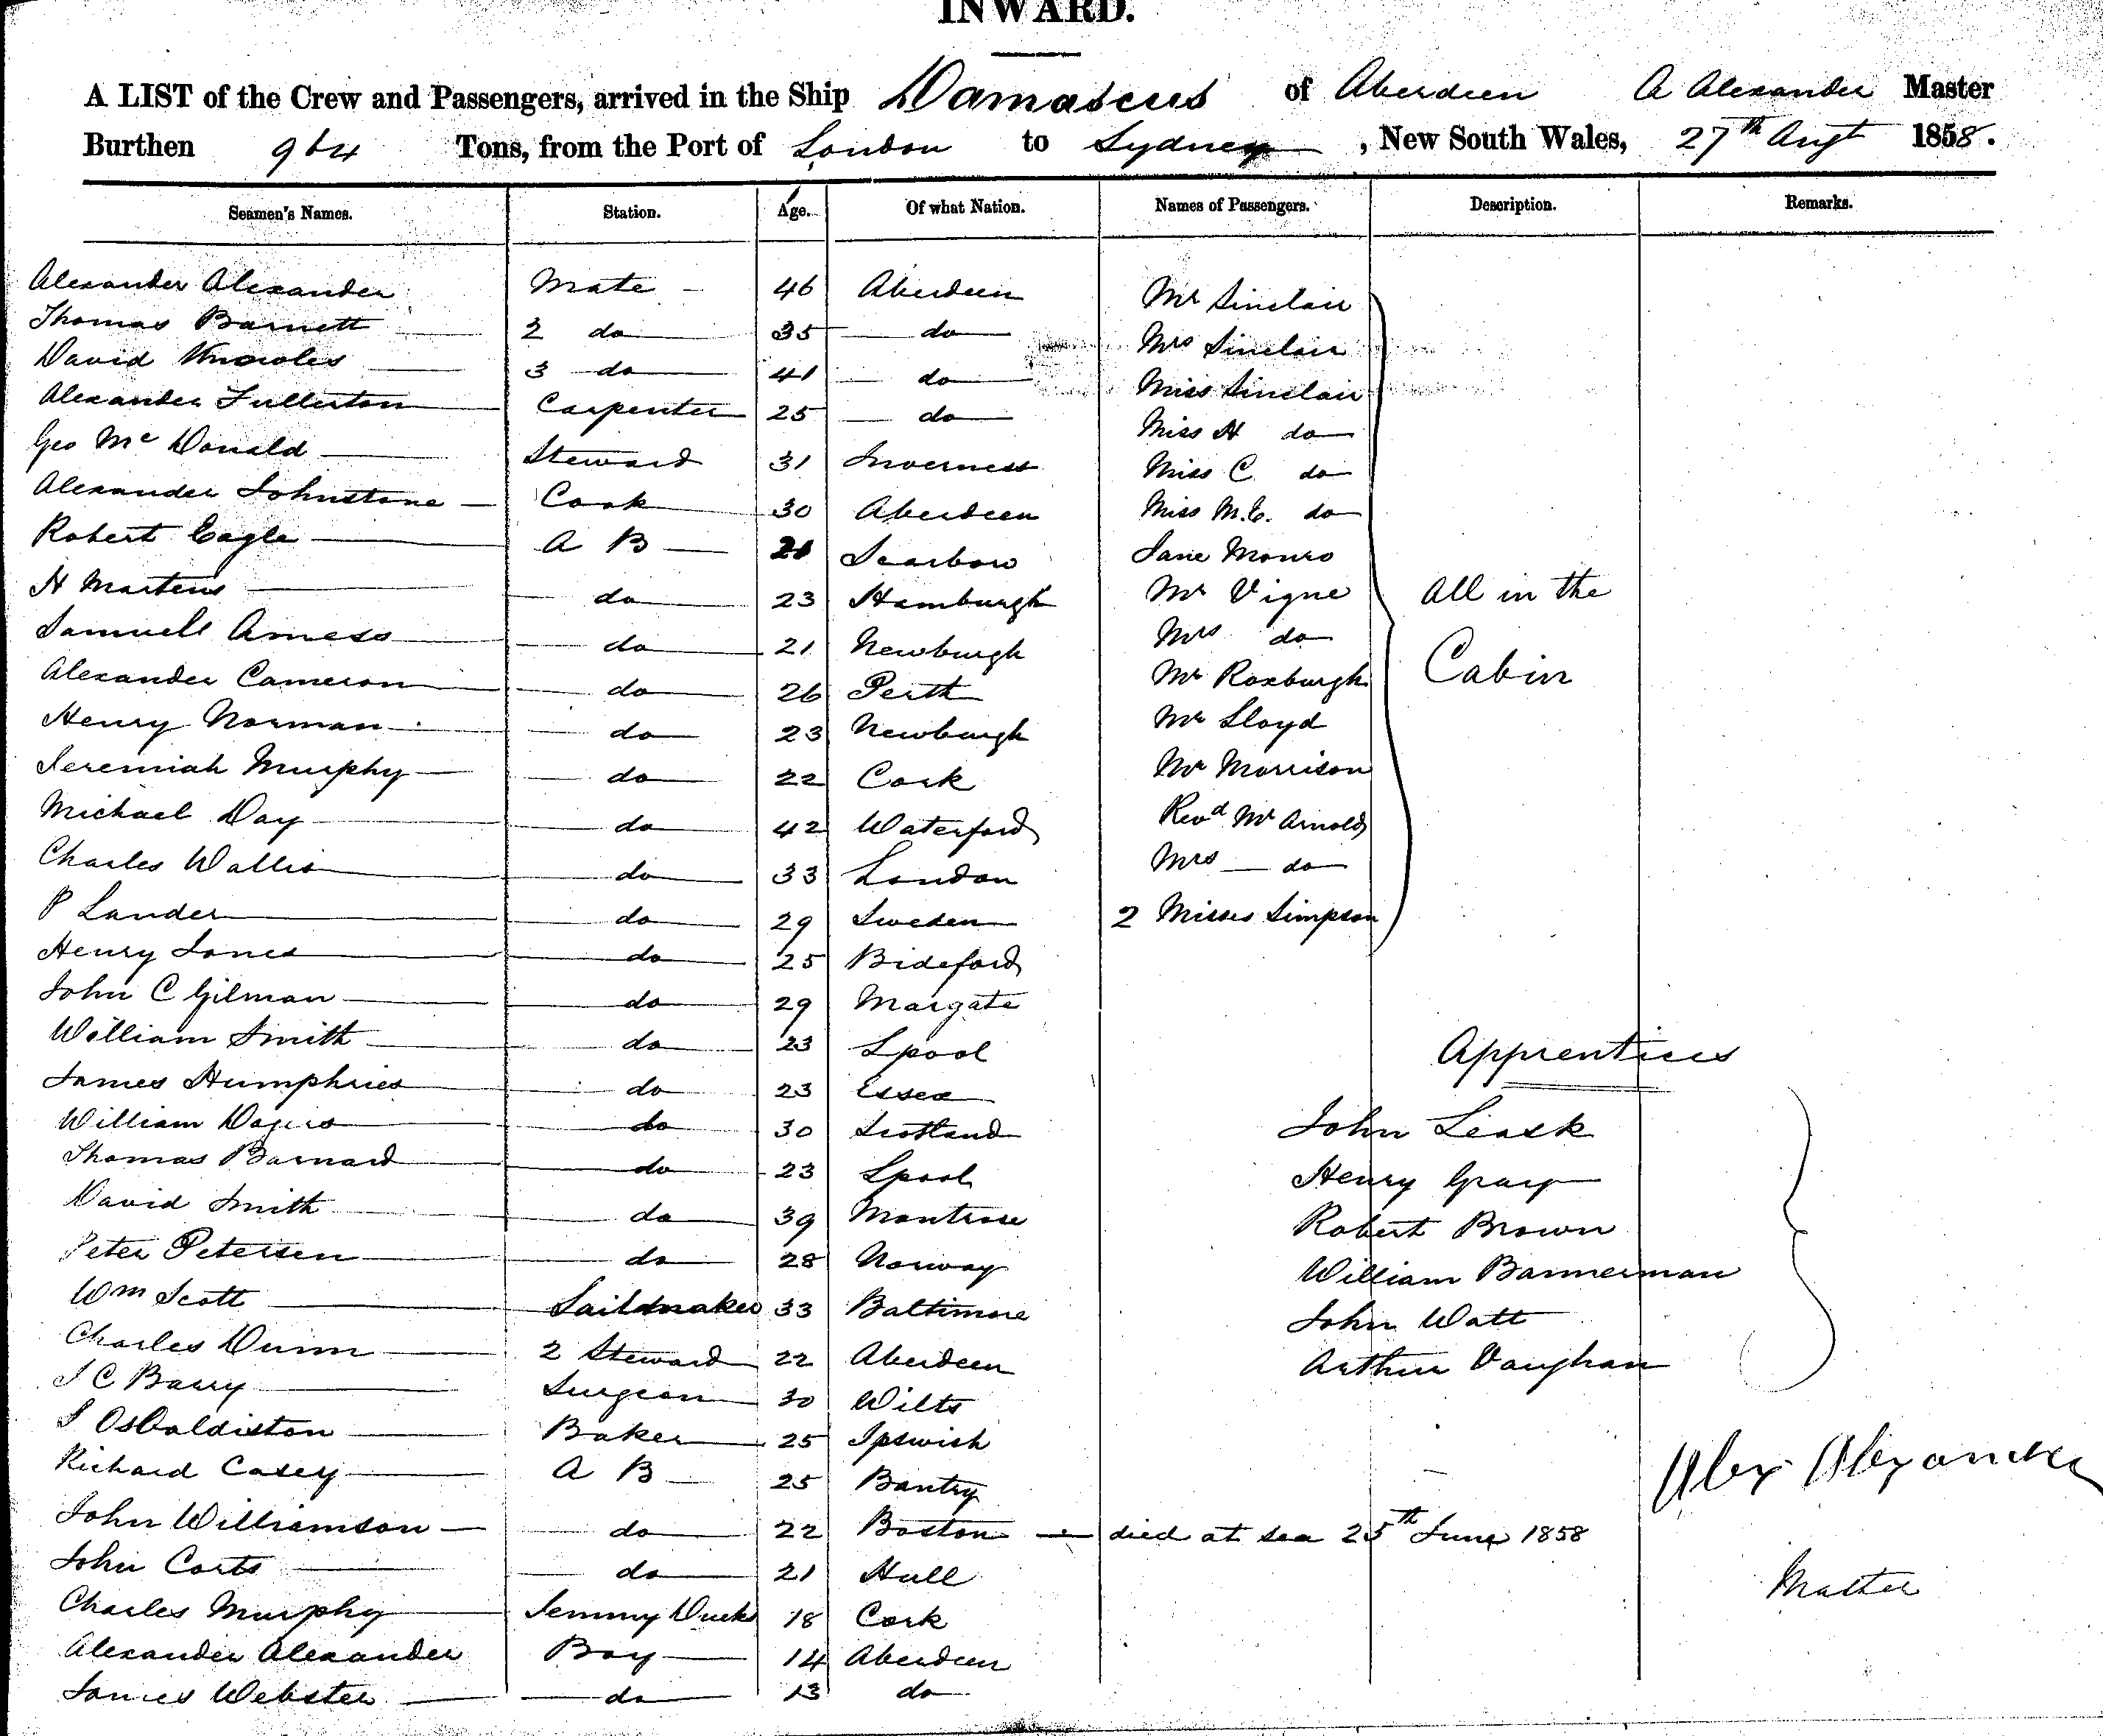 INWARD.
A LIST of the Crew and Passengers, arrived in the Ship Damascus of Aberdeen A Alexander Master
Burthen 964 Tons, from the Port of London to Sydney, New South Wales, 27th Augt 1858.
Seamen's Names. Station. Age. Of what Nation. Names of Passengers. Description. Remarks.
Alexander Alexander Mate 46 Aberdeen Mr Sinclair
Thomas Barnett 2 do 35 do Mrs Sinclair
David Knowles 3 do 41 do Miss Sinclair
Alexander Fullerton Carpenter 25 do Miss H do
Geo Mc Donald Steward 31 Inverness Miss C. do
Alexander Johnstone Cook 30 Aberdeen Miss M.C. do
Robert Eagle A B 21 Jane Monro
H Martens do 23 Hamburgh Mr Vigne All in the
Samuell Amess do 21 Newburgh Mrs do
Alexander Cameron do 26 Perth Mr Roxburgh Cabin
Henry Norman do 23 Newburgh Mr Lloyd
Jeremiah Murphy do 22 Cork Mr Morrison
Michael Day do 42 Waterford Revd Mr Arnold
Charles Wallis do 33 London Mrs do
P Lander do 29 Sweden 2 Misses Simpson
Henry Jones do 25 Bideford
John C Gilman do 29 Margate
William Smith do 23 Lpool Apprentices
James Humphries do 23 Essex
William do 30 Scotland John Leask
Thomas Barnard do 23 Lpool Henry Gray
David Smith do 39 Montrose Robert Brown
Peter Petersen do 28 Norway William Bannerman
Wm Scott Sailmaker 33 Baltimore John Watt
Charles Dunn 2 Steward 22 Aberdeen Arthur Vaughan
J C Barry Surgeon 30 Wilts
S Osbaldiston Baker 25 Ipswich
Richard Casey A B 25 Bantry Alex Alexander
John Williamson do 22 Boston died at sea 25th June 1858
John Corts do 21 Hull Master
Charles Murphy Jemmy Ducks 18 Cork
Alexander Alexander Boy 14 Aberdeen
James Webster do 13 do